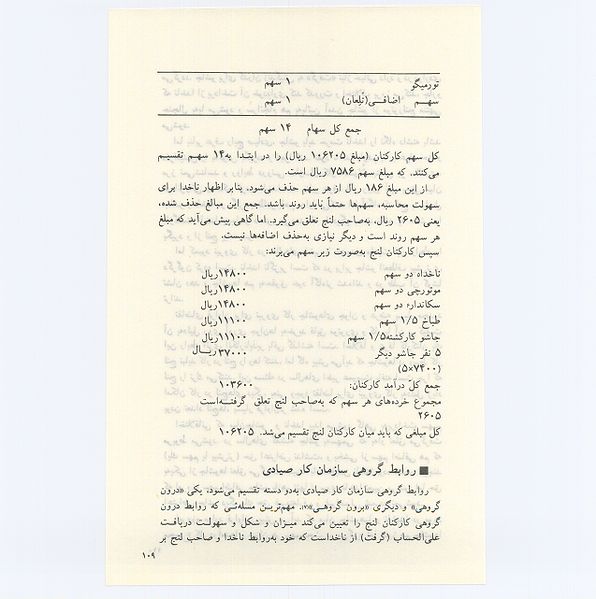 تورمیگو ۱ سهم
سهم اضافی(تُلعان) ۱ سهم
جمع کل سهام ۱۴ سهم
کل سهم کارکنان (مبلغ ۱۰۶۲۰۵ ریال) را در ابتدا به۱۴ سهم تقسیم
می‌کنند، که مبلغ سهم ۷۵۸۶ ریال است.
از این مبلغ ۱۸۶ ریال از هر سهم حذف می‌شود. بنابر اظهار ناخدا برای
سهولت محاسبه، سهم‌ها حتماً باید روند باشد. جمع این مبالغ حذف شده،
یعنی ۲۶۰۵ ریال، به‌صاحب لنج تعلق می‌گیرد. اما گاهی پیش می‌آید که مبلغ
هر سهم روند است و دیگر نیازی به‌حذف اضافه‌ها نیست.
سپس کارکنان لنج به‌صورت زیر سهم می‌برند:
ناخداه دو سهم ۱۴۸۰۰ریال
موتورچی دو سهم ۱۴۸۰۰ریال
سکاندارء دو سهم ۱۴۸۰۰ریال
طباخ ۱/۵ سهم ۱۱۱۰۰ریال
جاشو کارکشته۱/۵ سهم ۱۱۱۰۰ریال
۵ نفر جاشو دیگر ۳۷۰۰۰ریال
(۵×۷۴۰۰)
جمع کل درآمد کارکنان: ۱۰۳۶۰۰
مجموع خرده‌های هر سهم که به‌صاحب لنج تعلق گرفته‌است
۲۶۰۵
کل مبلغی که باید میان کارکنان لنج تقسیم می‌شد. ۱۰۶۲۰۵
■ روابط گروهی سازمان کار صیادی
روابط گروهی سازمان کار صیادی به‌دو دسته تقسیم می‌شود، یکی «درون
گروهی» و دیگری «برون گروهی». مهم‌ترین مسئله‌ئی که روابط درون
گروهی کارکنان لنج را تعیین می‌کند میزان و شکل و سهولت دریافت
علی‌الحساب (گرفت) از ناخداست که خود به‌روابط ناخدا و صاحب لنج بر
۱۰۹